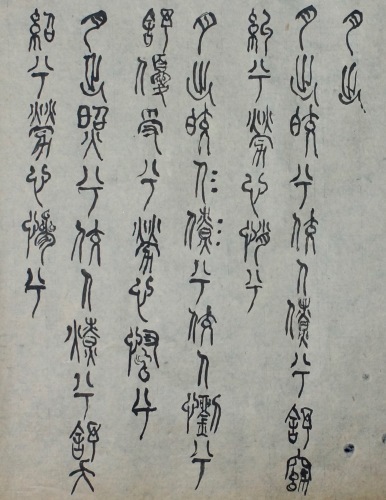 月出
月出皎兮佼人僚兮舒窈
糾兮勞心悄兮
月出皓兮佼人懰兮
舒優受兮勞心慅兮
月出照兮佼人燎兮舒夭
紹兮勞心慘兮